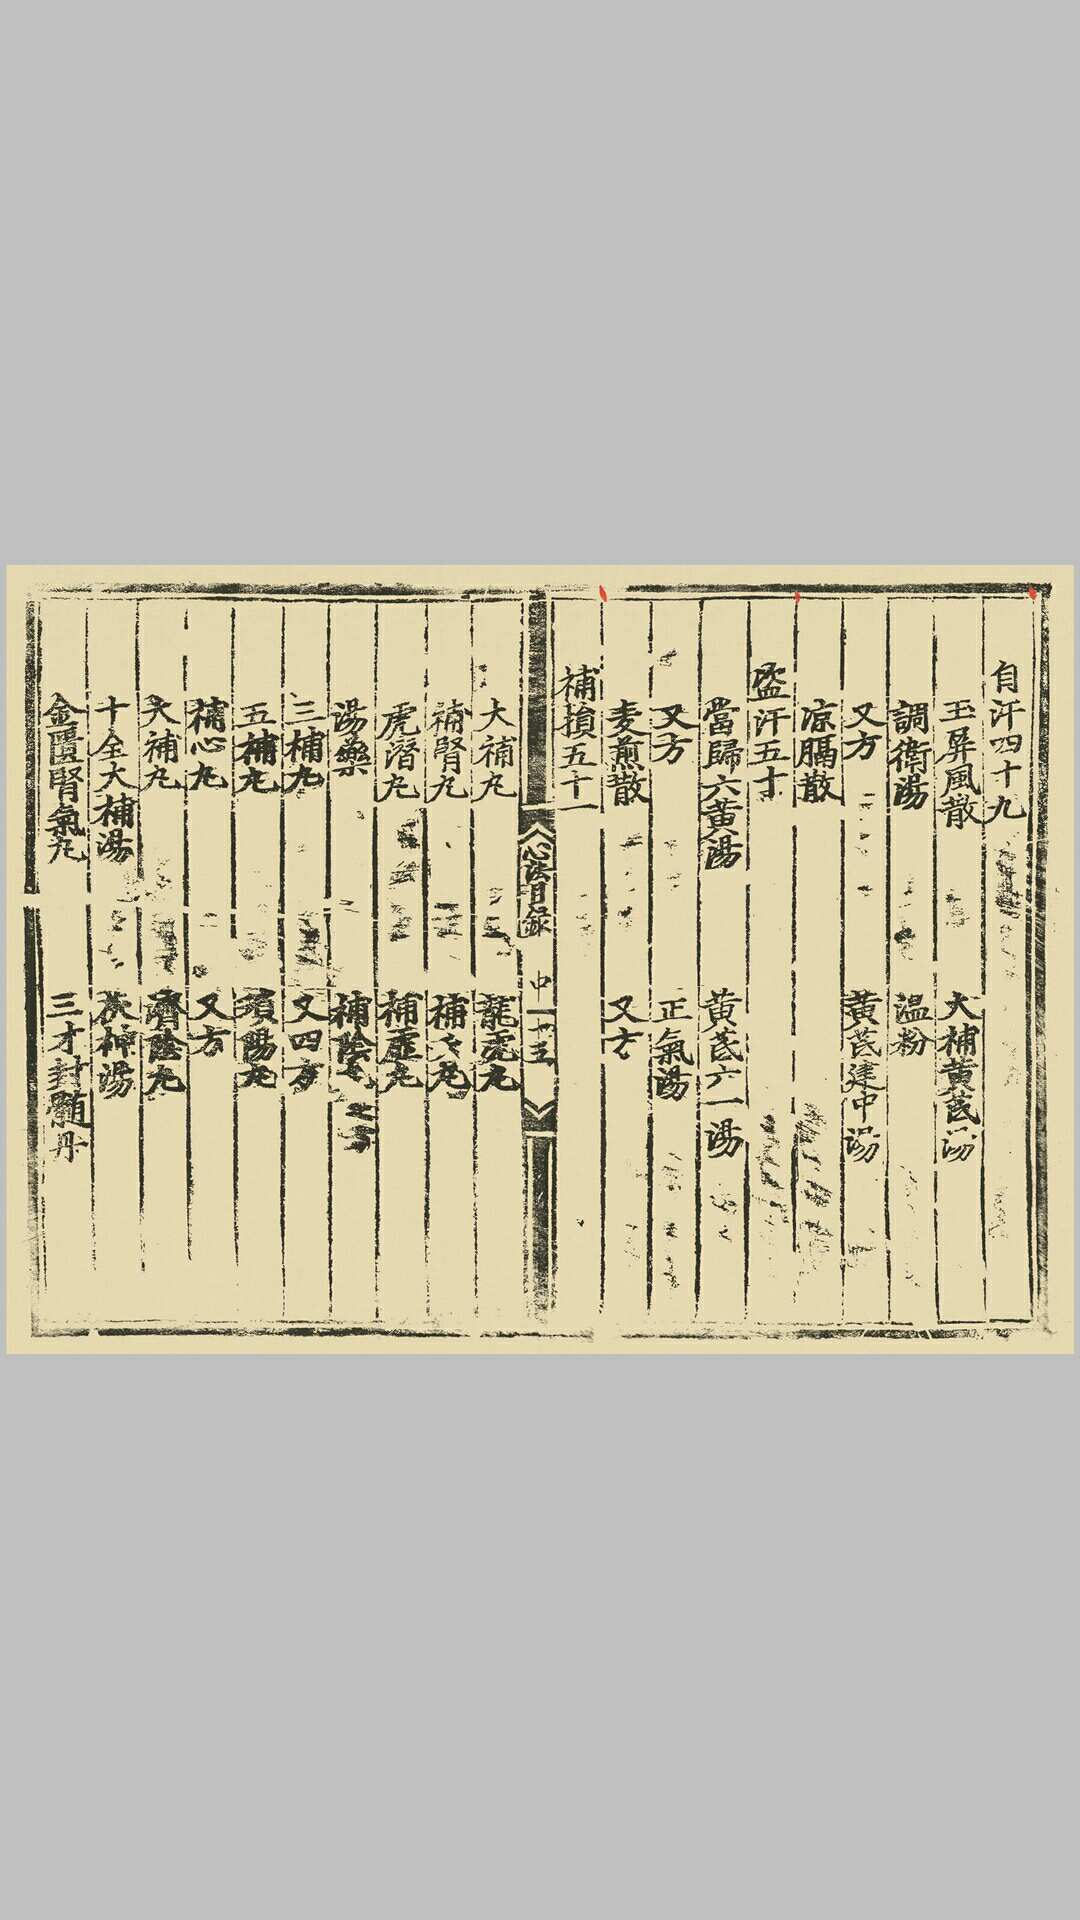 自汗四十九
玉屏風散　大補黄芪湯
調衛湯　温粉
又方　黄芪建中湯
凉膈散
盗汗五十
當歸六黄湯　黄芪六一湯
又方　正氣湯
麦煎散　又方
補損五十一
心法目錄　中　廿五
大補丸　龍虎丸
補腎丸　補丸
虎潛丸　補虛丸
湯藥　補陰
三補丸　又四方
五補丸　陽丸
補心丸　又方
大補丸　濟陰丸
十全大補湯　茯神湯
金匱腎氣丸　三才封髓丹